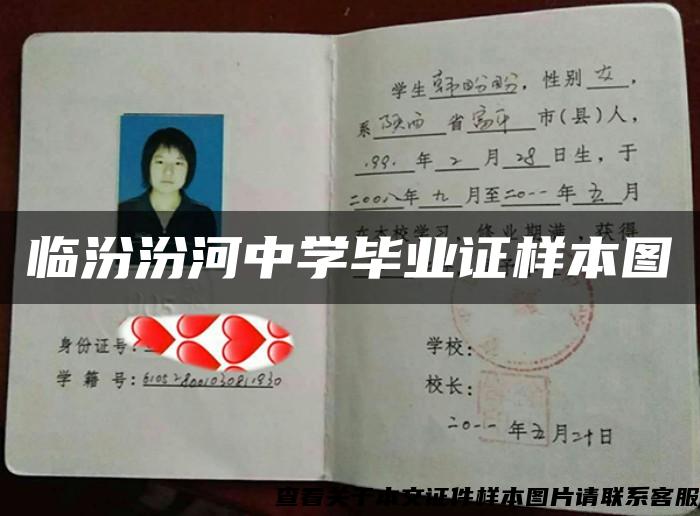 学生韩盼盼，性别女，
系陕西省富平市(县)人，
1991年2月28日生，于
二00八年九月至二0一一年五月
在本校学习，修业期满，获得
临汾汾河中学毕业证样本图
身份证号：
学籍号：6105280010308111930
学校：
校长：
二0一一年五月二十日
查看关于本文证件样本图片请联系客服